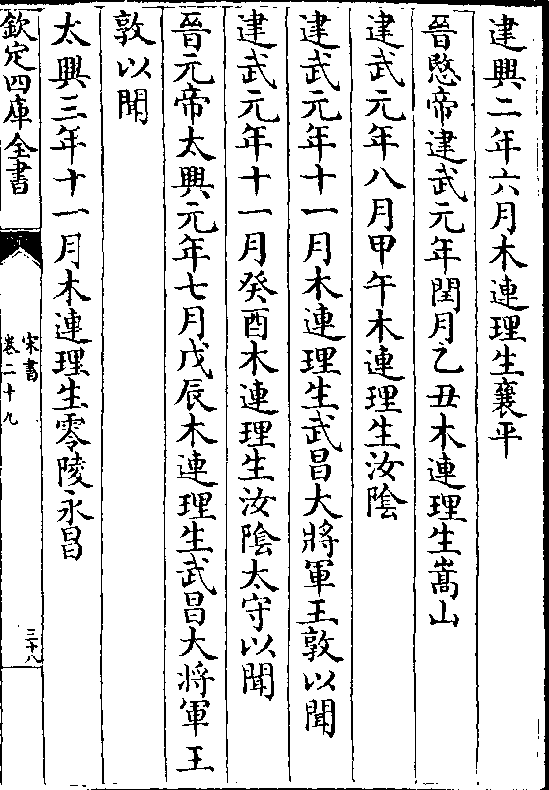 建興二年六月木連理生襄平
晉愍帝建武元年閏月乙丑木連理生嵩山
建武元年八月甲午木連理生汝陰
建武元年十一月木連理生武昌大將軍王敦以聞
建武元年十一月癸酉木連理生汝陰太守以聞
晉元帝太興元年七月戊辰木連理生武昌大將軍王
敦以聞
太興三年十一月木連理生零陵永昌
欽定四庫全書
宋書
卷二十九
三十八